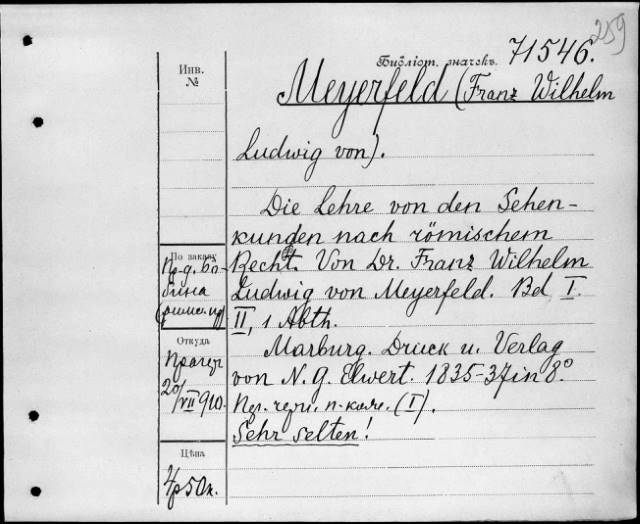 259
Библіот. значекъ. 71546.
Инв.
№
Meyerfeld (Franz Wilhelm
Ludwig von).
Die Lehre von den Schen-
kungen nach römischem
Recht. Von Dr. Franz Wilhelm
Ludwig von Meyerfeld. Bd I.
II, 1 Abth.
Marburg. Druck u. Verlag
von N. G. Elwert. 1835-37 in 8°.
(I).
Sehr selten!
По заказу
Пр-д. Бо-
бина
Откуда
20/VII 910.
Цѣна
4р50к.